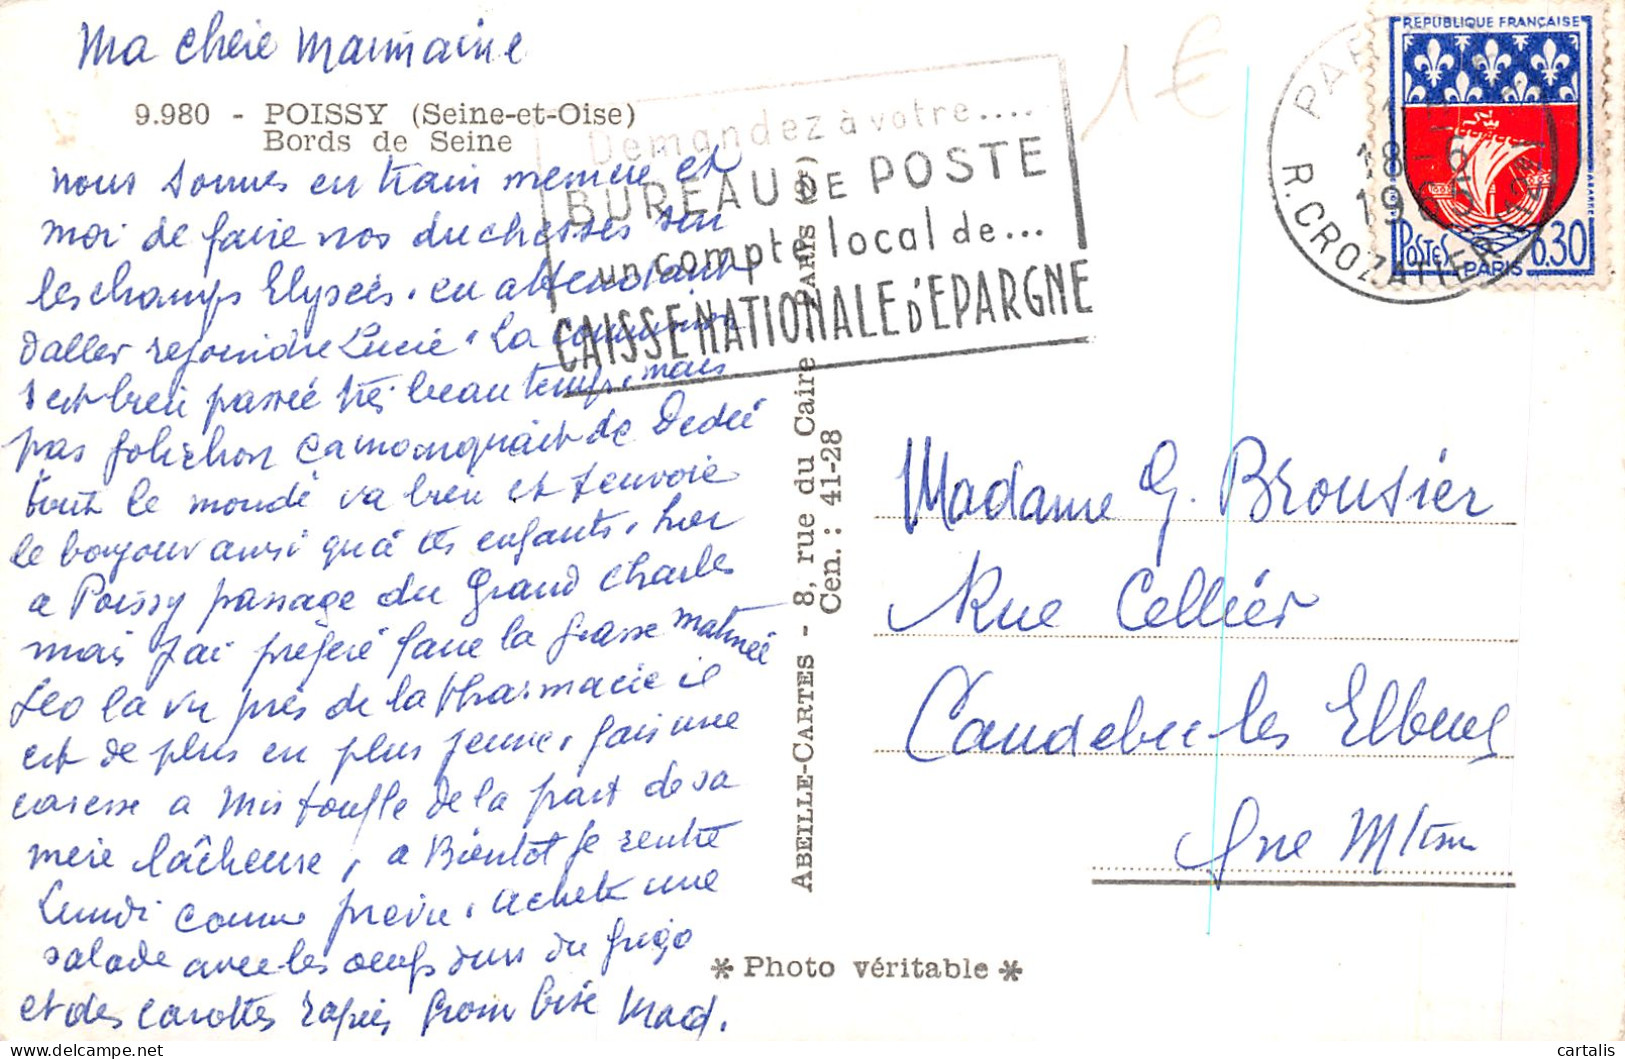 Ma chère Marmaine
9.980 - POISSY (Seine-et-Oise)
Bords de Seine
nous sommes en train mémère et
moi de faire nos duchesses sur
les champs Elysées. en attendant
daller rejoindre Lucie. La communion
s est bien passée très beau temps. mais
pas folichon ca manquait de Dédé
tout le monde va bien et t envoie
le bonjour ainsi qu'à tes enfants. hier
a Poissy passage du Grand Charles
mais j'ai préféré faire la grasse matinée
Léo la vu près de la Pharmacie il
est de plus en plus jeune. fais une
caresse a Mistoufle de la part de sa
mère lâcheuse, a Bientôt je rentre
Lundi comme prévu. achete une
salade avec les oeufs durs du frigo
et des carottes rapées Grosse bise Mad.
Demandez à votre....
BUREAU DE POSTE
un compte local de...
CAISSE NATIONALE d'EPARGNE
PARIS
18-6
1965
R. CROZATIER
REPUBLIQUE FRANÇAISE
POSTES 0,30
PARIS
1€
ABEILLE-CARTES - 8, rue du Caire PARIS (2e)
Cen. : 41-28
Madame G. Brousier
Rue Cellier
Caudebec les Elbeuf
Sne Mtme
* Photo véritable *
cartalis
delcampe.net